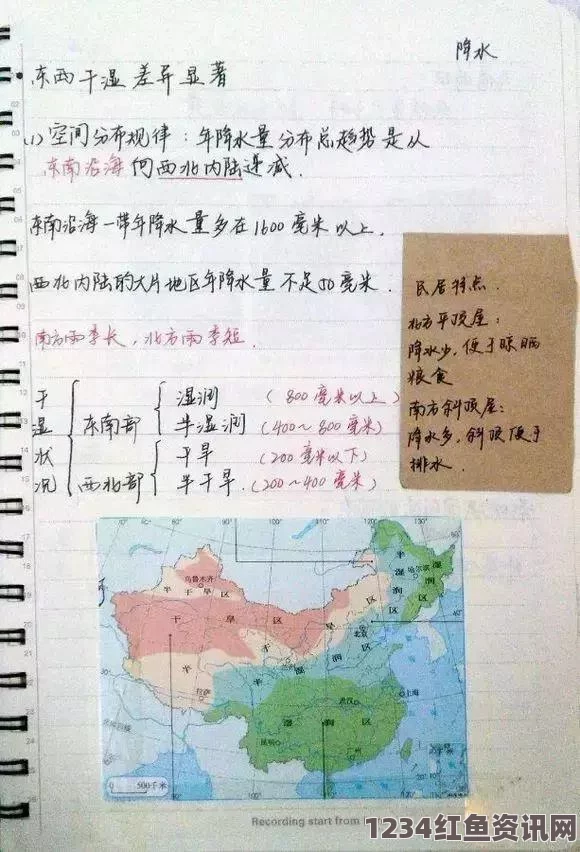 降水
东西干湿差异显著
(1) 空间分布规律：年降水量分布总趋势是从
东南沿海向西北内陆递减.
东南沿海一带年降水量多在1600毫米以上.
西北内陆的大片地区年降水量不足50毫米.
南方雨季长，北方雨季短.
干湿状况
东南部
湿润 (800毫米以上)
半湿润 (400~800毫米)
西北部
干旱 (200毫米以下)
半干旱 (200~400毫米)
民居特点.
北方平顶屋：
降水少，便于晾晒
粮食
南方斜顶屋：
降水多，斜顶便于
排水.
70° 80° 90° 100° 110° 120° 130°
乌鲁木齐
半干旱区
干旱区
半干旱区
半湿润区
湿润区
哈尔滨
北京
拉萨
兰州
半湿润区
湿润区
武汉
上海
昆明
广州
0 500千米
Recording start from
1234红鱼资讯网